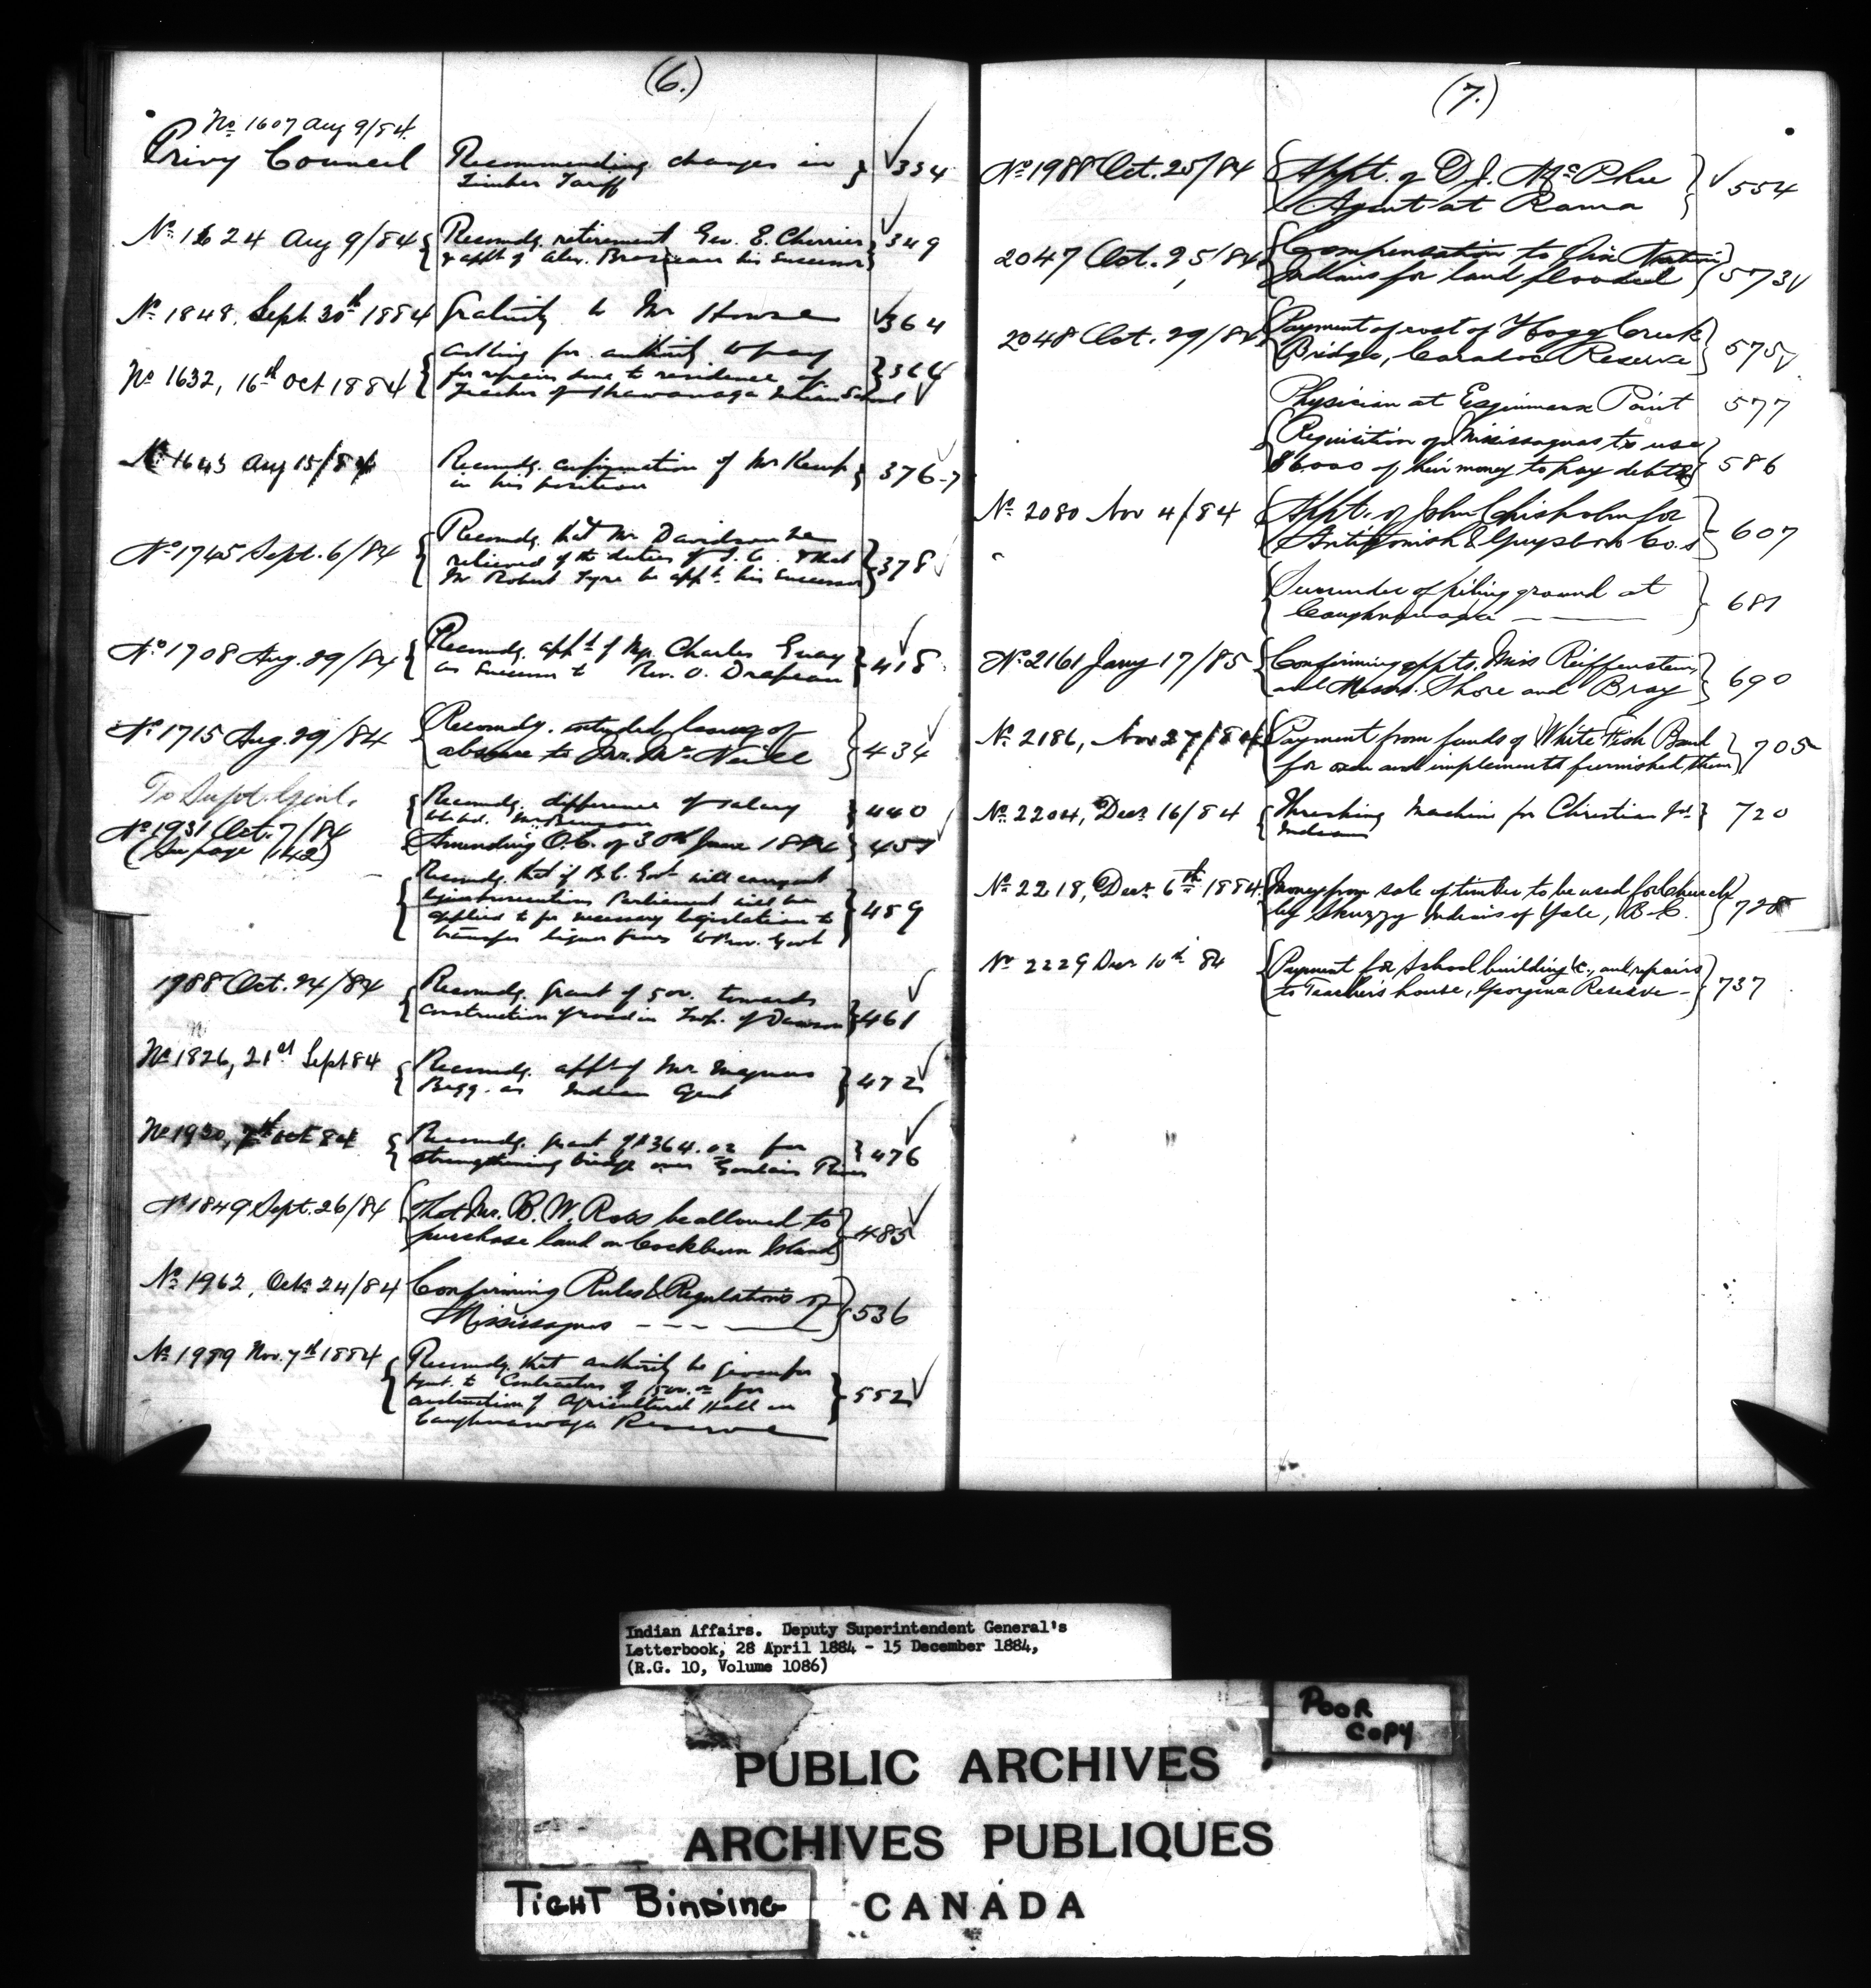 (6.)
No 1607 Aug 9/84.
Privy Council
Recommending changes in
Timber Tariff
334
No 1624 Aug 9/84
Recomdg. retirement Geo. E. Cherrier
& appt of Alex. Brosseau his Successor
349
No 1848, Sept. 30th 1884
Gratuity to Mr Howse
364
No 1632, 16th Oct 1884
Asking for authority to pay
for repairs done to residence of
Teacher of Shawanaga Indian School
366
No 1643 Aug 15/84
Recomdg. confirmation of Mr Kemp
in his position
376-7
No 1745 Sept. 6/84
Recomdg. that Mr Davidson be
relieved of the duties of & that
Mr Robert Tyre be appt. his Successor
378
No 1708 Aug. 29/84
Recomdg. appt of Mr. Charles
as Successor to Rev. O. Drapeau
418
No 1715 Aug. 29/84
Recomdg. extended leave of
absence to Mr. McNeill
434
To Supt. Genl.
Recomdg. difference of salary
440
No 1931 Oct. 7/84
(See page 142)
Amending O.C. of 30th June 1884
457
Recomdg. that if B.C. Govt will carry out
Parliament will be
applied to for necessary legislation to
transfer liquor fines to Prov. Govt
459
1988 Oct. 24/84
Recomdg. grant of 500. towards
construction of road in Twp. of Dawson
461
No 1826, 21st Sept 84
Recomdg. appt of Mr. Magnus
Begg. as Indian Agent
472
No 1930, 7th Oct 84
Recomdg. grant of $364.00 for
strengthening bridge over Goulais River
476
No 1849 Sept. 26/84
That Mr. B. W. Ross be allowed to
purchase land on Cockburn Island
485
No 1962, Octr 24/84
Confirming Rules & Regulations of
Mississaguas
536
No 1989 Nov. 7th 1884
Recomdg. that authority be given for
to Contractors of 500.00 for
construction of Agricultural Hall on
Caughnawaga Reserve
552
(7.)
No 1988 Oct. 25/84
Appt. of D. J. McPhee
Agent at Rama
554
2047 Oct. 25/84
Compensation to Six Nation
Indians for land flooded
573
2048 Oct. 29/84
Payment of cost of Hogg Creek
Bridge, Caradoc Reserve
575
Physician at Esquimaux Point
577
Requisition of Mississaguas to use
$6000 of their money to pay debts
586
No 2080 Nov 4/84
Appt. of John Chisholm for
Antigonish & Guysboro Co.s
607
Surrender of piling ground at
Caughnawaga
681
No 2161 Jany 17/85
Confirming appts. Miss Reiffenstein,
and Messrs. Shore and Bray
690
No 2186, Nov 27/84
Payment from funds of White Fish Band
for oxen and implements furnished them
705
No 2204, Decr 16/84
Threshing Machine for Christian Isd
Indians
720
No 2218, Decr 6th 1884
Money from sale of timber to be used for Church
by Skuzzy Indians of Yale, B.C.
728
No 2229 Decr 10th 84
Payment for School building &c, and repairs
to Teacher's house, Georgina Reserve
737
Indian Affairs. Deputy Superintendent General's
Letterbook, 28 April 1884 - 15 December 1884,
(R.G. 10, Volume 1086)
POOR
COPY
PUBLIC ARCHIVES
ARCHIVES PUBLIQUES
CANADA
TIGHT BINDING